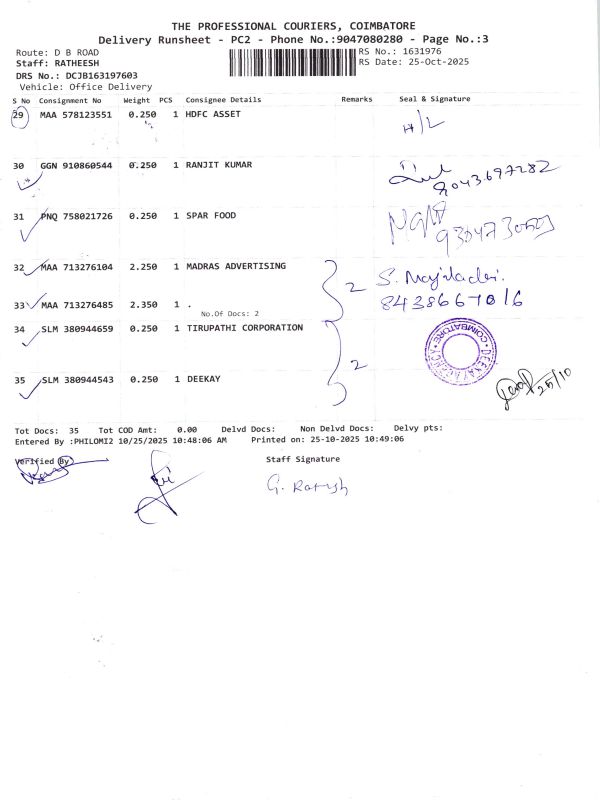 THE PROFESSIONAL COURIERS, COIMBATORE
Delivery Runsheet - PC2 - Phone No.:9047080280 - Page No.:3
Route: D B ROAD RS No.: 1631976
Staff: RATHEESH RS Date: 25-Oct-2025
DRS No.: DCJB163197603
Vehicle: Office Delivery
S No Consignment No Weight PCS Consignee Details Remarks Seal & Signature
29 MAA 578123551 0.250 1 HDFC ASSET H/L
30 GGN 910860544 0.250 1 RANJIT KUMAR
9043697282
31 PNQ 758021726 0.250 1 SPAR FOOD
32 MAA 713276104 2.250 1 MADRAS ADVERTISING 2 S.
33 MAA 713276485 2.350 1 . 8438667016
No.Of Docs: 2
34 SLM 380944659 0.250 1 TIRUPATHI CORPORATION COIMBATORE
2
35 SLM 380944543 0.250 1 DEEKAY 25/10
Tot Docs: 35 Tot COD Amt: 0.00 Delvd Docs: Non Delvd Docs: Delvy pts:
Entered By :PHILOMI2 10/25/2025 10:48:06 AM Printed on: 25-10-2025 10:49:06
Verified By Staff Signature
G. Ratish